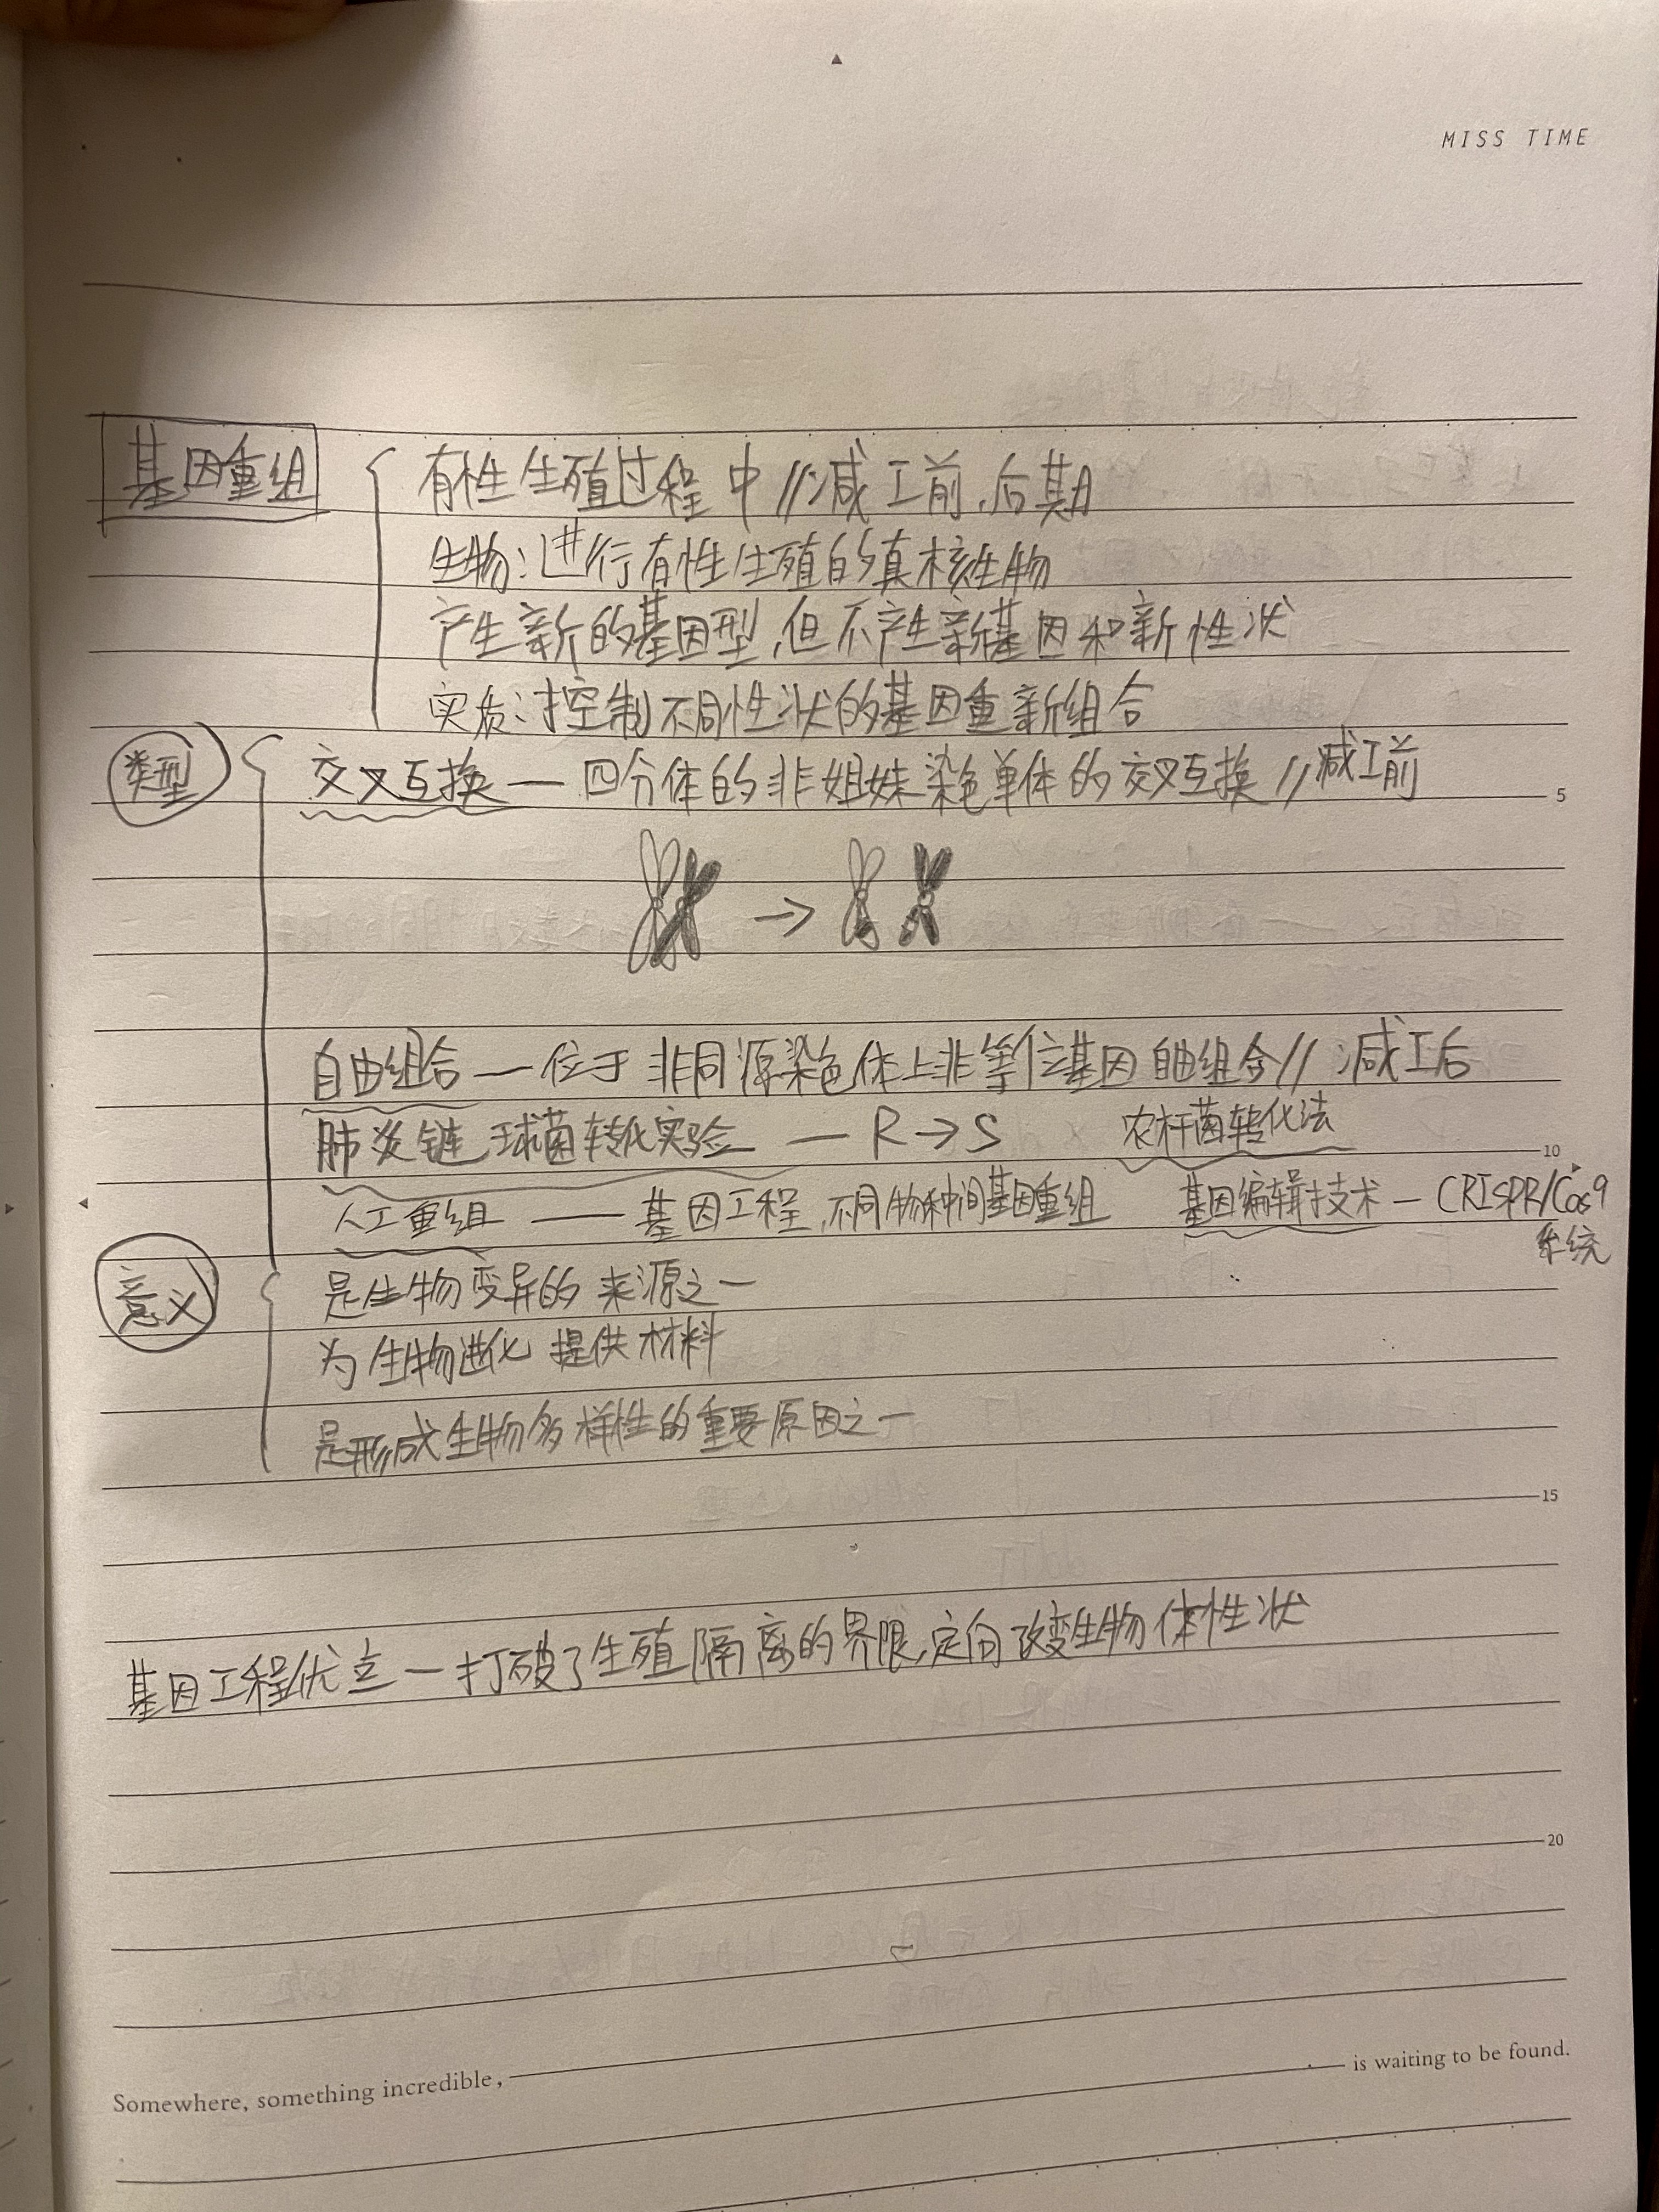 MISS TIME
基因重组
有性生殖过程中//减Ⅰ前.后期
生物:进行有性生殖的真核生物
产生新的基因型,但不产生新基因和新性状
实质:控制不同性状的基因重新组合
类型
交叉互换—四分体的非姐妹染色单体的交叉互换//减Ⅰ前
5
→
自由组合—位于非同源染色体上非等位基因自由组合//减Ⅰ后
肺炎链球菌转化实验—R→S
农杆菌转化法
10
人工重组——基因工程,不同物种间基因重组
基因编辑技术—CRISPR/Cas9
系统
意义
是生物变异的来源之一
为生物进化提供材料
是形成生物多样性的重要原因之一
15
基因工程优点—打破了生殖隔离的界限,定向改变生物体性状
20
Somewhere, something incredible,
is waiting to be found.